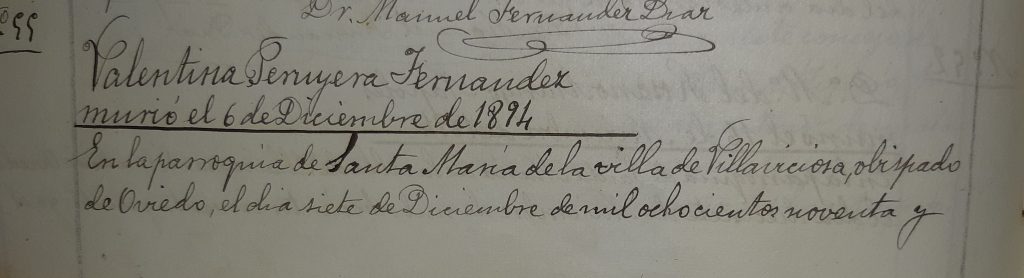 Dr. Manuel Fernandez Diaz
Nº 55
Valentina Peruyera Fernandez
murió el 6 de Diciembre de 1894
En la parroquia de Santa María de la villa de Villaviciosa, obispado
de Oviedo, el dia siete de Diciembre de mil ochocientos noventa y